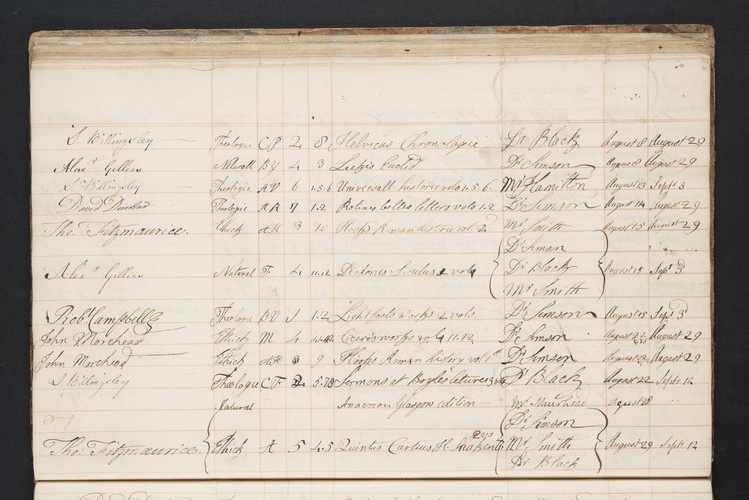 S. Billingsley Theologic C P 2 8 Helvicus Chronologie Dr Black August 8 August 29
Alexr Gillies Naturall B Y 4 3 Euclid Dr Simson August 8 August 29
S. Billingsley Theologic A U 6 1.5.6 Universall historie vols 1.5.6. Mr Hamilton August 13 Septr 3
David Theologic A R 7 1.2 Rolins belles letters vols 1.2 Dr Simson August 14 August 29
Tho: Fitzmaurice Ethick 3 Hooks Roman historie vol Mr Smith August 15 August 29
Dr Simson
Alexr Gillies Natural F. 4 Diodorus Siculus 2 vols Dr Black August 15 Septr 3
Mr Smith
Robt Campbell Theologic B U 1 1.2 Lightfoots works 2 vols Dr Simson August 15 Septr 3
John Morehead Ethick M 4 11.12 Ciceros works vols 11.12 Dr Simson August 22 August 29
John Morehead Ethick 3 9 Hooks Roman history vol Dr Simson August 22 August 29
S. Billingsley Theologic C F 2 5.7.8 Sermons at Boyles lectures Dr Black August 22 Septr 12
Natural Anacreon Glasgow edition Mr Muirhead August 28
Dr Simson
Tho: Fitzmaurice Ethick A 5 4.5 Quintus Curtius Mr Smith August 29 Septr 12
Dr Black